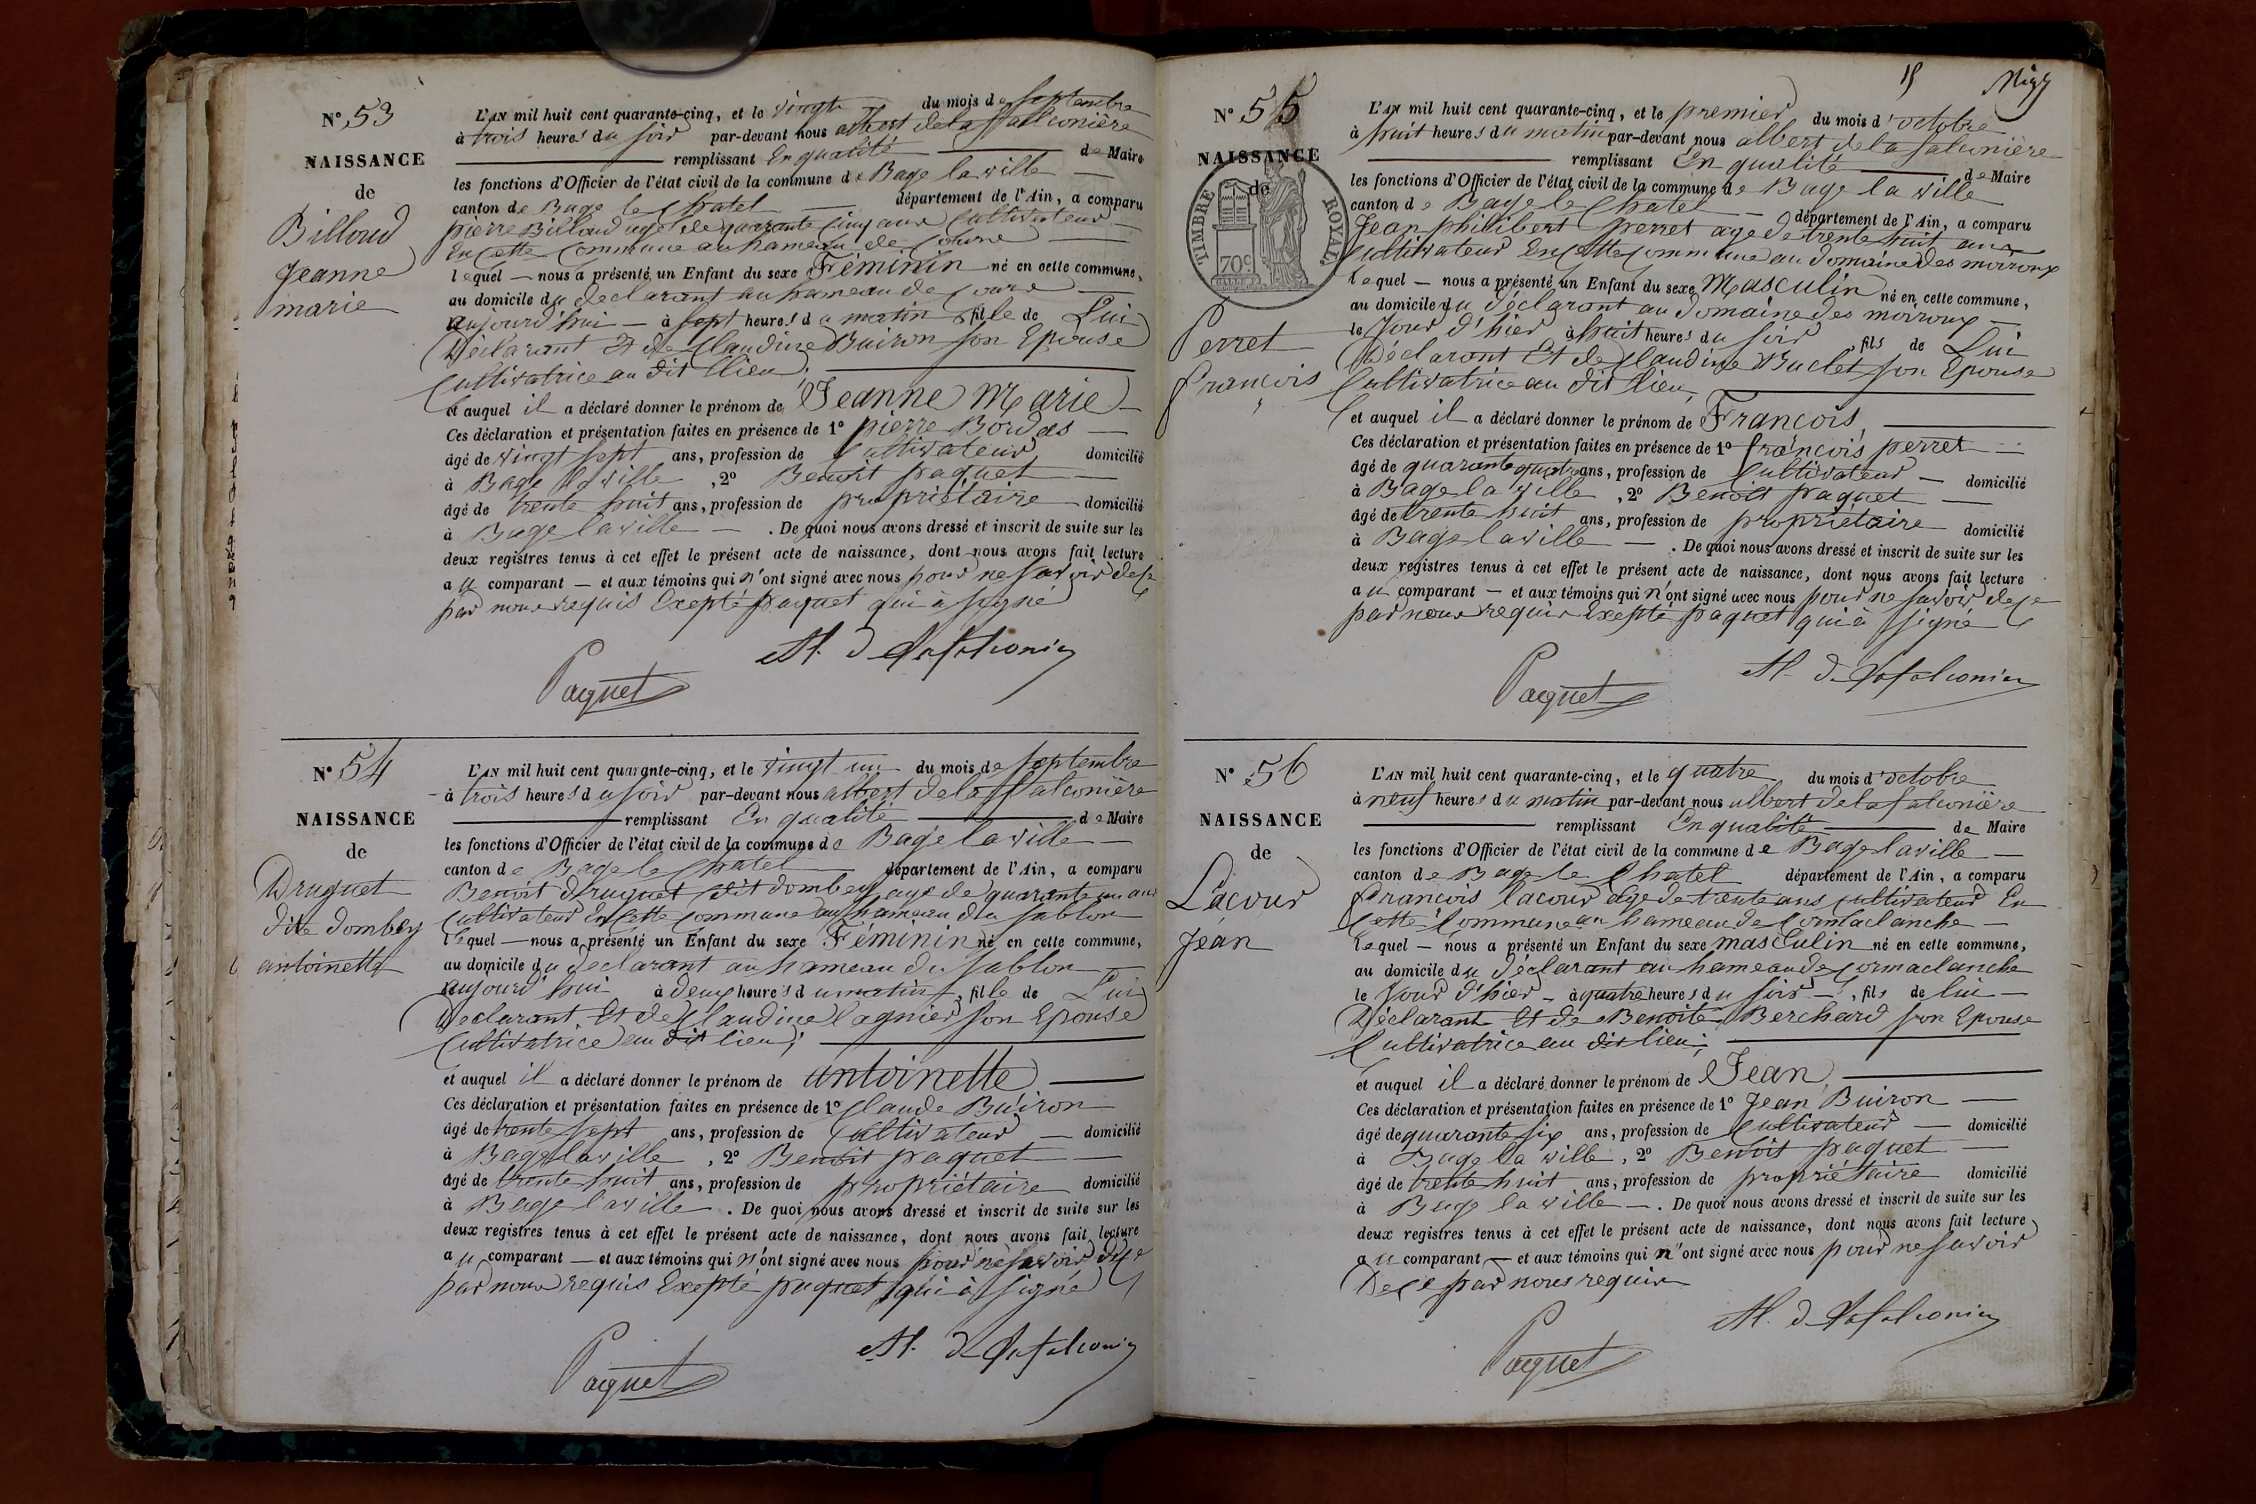 N° 53
NAISSANCE
de
Billoud
Jeanne
marie
L'AN mil huit cent quarante-cinq, et le vingt du mois de septembre
à trois heures du soir par-devant nous albert de la falconière
remplissant En qualité de Maire
les fonctions d'Officier de l'état civil de la commune de Bage la ville
canton de Bage le Chatel département de l'Ain, a comparu
pierre Billoud agé de quarante cinq ans Cultivateur
En Cette Commune au hameau de
lequel — nous a présenté un Enfant du sexe Féminin né en cette commune,
au domicile du declarant au hameau de
aujourd'hui — à sept heures du matin fille de Lui
Déclarant Et de Claudine Buiron son Epouse
Cultivatrice au dit lieu;
et auquel il a déclaré donner le prénom de Jeanne Marie
Ces déclaration et présentation faites en présence de 1° pierre Bordes
âgé de vingt sept ans, profession de Cultivateur domicilié
à Bage la ville , 2° Benoit paquet
âgé de trente huit ans, profession de propriétaire domicilié
à Bage la ville . De quoi nous avons dressé et inscrit de suite sur les
deux registres tenus à cet effet le présent acte de naissance, dont nous avons fait lecture
au comparant — et aux témoins qui n'ont signé avec nous pour ne savoir de ce
par nous requis Exepté paquet qui à signé
Al. de Lafalconière
Paquet
N° 54
NAISSANCE
de
Druguet
dite dombey
antoinette
L'AN mil huit cent quarante-cinq, et le vingt un du mois de septembre
à trois heures du soir par-devant nous albert de la falconière
remplissant En qualité de Maire
les fonctions d'Officier de l'état civil de la commune de Bage la ville
canton de Bage le Chatel département de l'Ain, a comparu
Benoit Druguet dit dombey agé de quarante un ans
Cultivateur En Cette Commune au hameau du sablon
lequel — nous a présenté un Enfant du sexe Féminin né en cette commune,
au domicile du declarant au hameau du sablon
aujourd'hui à deux heures du matin, fille de Lui
Declarant Et de Claudine lagnier son Epouse
Cultivatrice au dit lieu;
et auquel il a déclaré donner le prénom de antoinette
Ces déclaration et présentation faites en présence de 1° Claude Buiron
âgé de trente sept ans, profession de Cultivateur — domicilié
à Bage la ville , 2° Benoit paquet
âgé de trente huit ans, profession de propriétaire domicilié
à Bage la ville . De quoi nous avons dressé et inscrit de suite sur les
deux registres tenus à cet effet le présent acte de naissance, dont nous avons fait lecture
au comparant — et aux témoins qui n'ont signé avec nous pour ne savoir de ce
par nous requis Exepté paquet qui à signé
Al. de Lafalconière
Paquet
15
N° 55
NAISSANCE
de
TIMBRE ROYAL
70c
Perret
François
L'AN mil huit cent quarante-cinq, et le premier du mois d'octobre
à huit heures du matin par-devant nous albert de la falconière
remplissant En qualité de Maire
les fonctions d'Officier de l'état civil de la commune de Bage la ville
canton de Bage le Chatel département de l'Ain, a comparu
Jean philibert perret agé de trente huit ans
Cultivateur En Cette Commune au domaine des moiroux
lequel — nous a présenté un Enfant du sexe Masculin né en cette commune,
au domicile du déclarant au domaine des moiroux
le Jour d'hier à huit heures du soir, fils de Lui
Déclarant Et de Claudine Buclet son Epouse
Cultivatrice au dit lieu,
et auquel il a déclaré donner le prénom de François,
Ces déclaration et présentation faites en présence de 1° françois perret
âgé de quarante quatre ans, profession de Cultivateur — domicilié
à Bage la ville , 2° Benoit paquet
âgé de trente huit ans, profession de propriétaire domicilié
à Bage la ville — . De quoi nous avons dressé et inscrit de suite sur les
deux registres tenus à cet effet le présent acte de naissance, dont nous avons fait lecture
au comparant — et aux témoins qui n'ont signé avec nous pour ne savoir de ce
par nous requis Exepté paquet qui à signé
Al. de Lafalconière
Paquet
N° 56
NAISSANCE
de
Lacour
Jean
L'AN mil huit cent quarante-cinq, et le quatre du mois d'octobre
à neuf heures du matin par-devant nous albert de la falconière
remplissant En qualité de Maire
les fonctions d'Officier de l'état civil de la commune de Bage la ville
canton de Bage le Chatel département de l'Ain, a comparu
François lacour agé de trente ans cultivateur En
Cette Commune au hameau de Cormaclanche
lequel — nous a présenté un Enfant du sexe masculin né en cette commune,
au domicile du déclarant au hameau de Cormaclanche
le Jour d'hier — à quatre heures du soir — , fils de lui
Déclarant Et de Benoite Berchard son Epouse
Cultivatrice au dit lieu;
et auquel il a déclaré donner le prénom de Jean,
Ces déclaration et présentation faites en présence de 1° Jean Buiron
âgé de quarante six ans, profession de Cultivateur — domicilié
à Bage la ville , 2° Benoit paquet
âgé de trente huit ans, profession de propriétaire domicilié
à Bage la ville — . De quoi nous avons dressé et inscrit de suite sur les
deux registres tenus à cet effet le présent acte de naissance, dont nous avons fait lecture
au comparant — et aux témoins qui n'ont signé avec nous pour ne savoir
De ce par nous requis
Al. de Lafalconière
Paquet